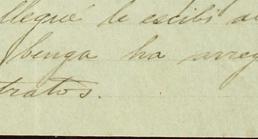 llegué le escibi a
benga ha arreg
tratos.